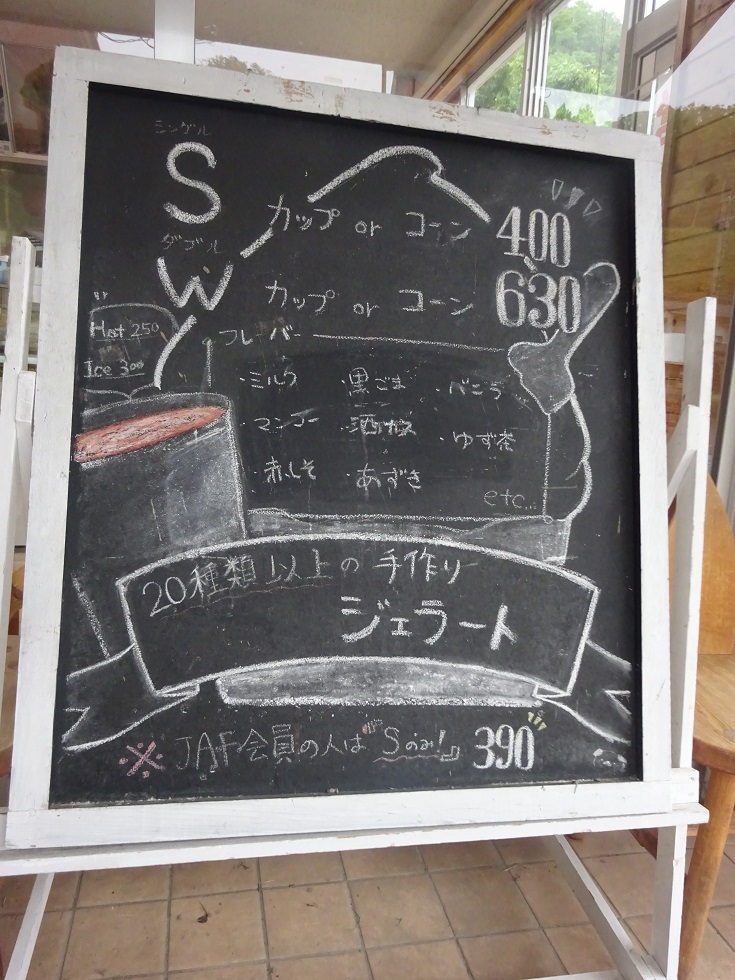 シングル
S カップ or コーン 400
ダブル
W カップ or コーン 630
Hot 250
Ice 300
フレーバー
・ミルク ・黒ごま ・バニラ
・マンゴー ・酒粕 ・ゆず茶
・赤しそ ・あずき
etc...
20種類以上の手作り
ジェラート
※JAF会員の人は『Sのみ!』390